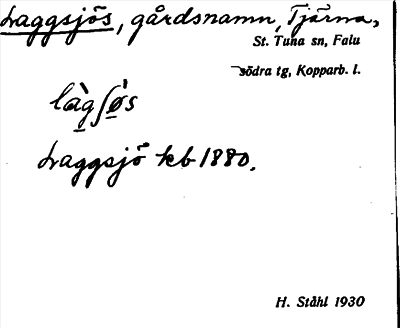 Laggsjös, gårdsnamn, Tjärna,
St. Tuna sn, Falu
södra tg, Kopparb. l.
làgʃø̀s
Laggsjö kb 1880.
H. Ståhl 1930